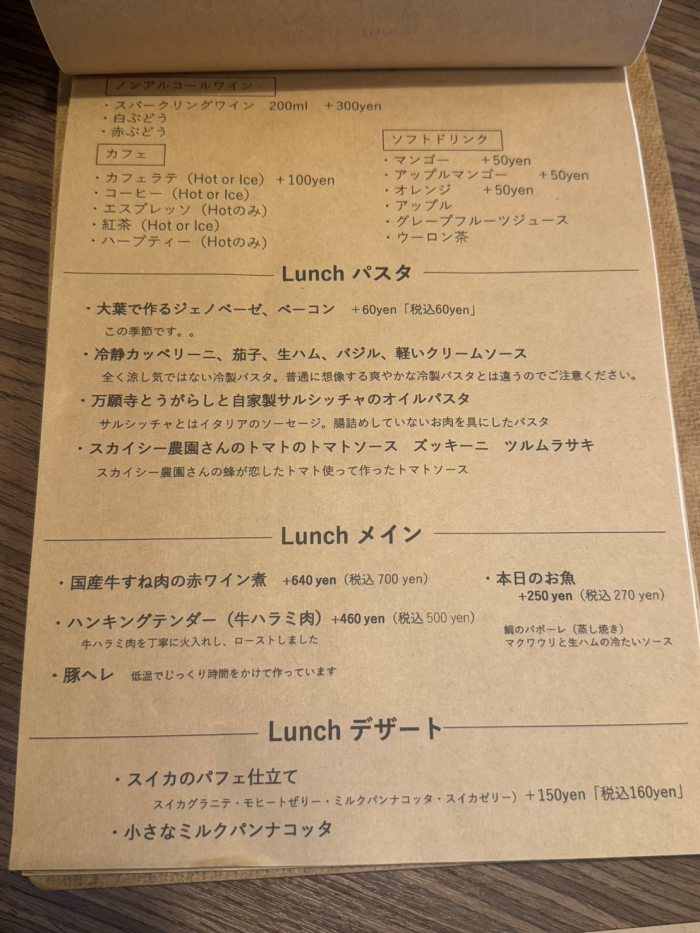 ノンアルコールワイン
・スパークリングワイン 200ml +300yen
・白ぶどう
・赤ぶどう
カフェ
・カフェラテ（Hot or Ice）+100yen
・コーヒー（Hot or Ice）
・エスプレッソ（Hotのみ）
・紅茶（Hot or Ice）
・ハーブティー（Hotのみ）
ソフトドリンク
・マンゴー +50yen
・アップルマンゴー +50yen
・オレンジ +50yen
・アップル
・グレープフルーツジュース
・ウーロン茶
Lunch パスタ
・大葉で作るジェノベーゼ、ベーコン +60yen「税込60yen」
この季節です。。
・冷静カッペリーニ、茄子、生ハム、バジル、軽いクリームソース
全く涼し気ではない冷製パスタ。普通に想像する爽やかな冷製パスタとは違うのでご注意ください。
・万願寺とうがらしと自家製サルシッチャのオイルパスタ
サルシッチャとはイタリアのソーセージ。腸詰めしていないお肉を具にしたパスタ
・スカイシー農園さんのトマトのトマトソース ズッキーニ ツルムラサキ
スカイシー農園さんの蜂が恋したトマト使って作ったトマトソース
Lunch メイン
・国産牛すね肉の赤ワイン煮 +640 yen（税込 700 yen）
・ハンキングテンダー（牛ハラミ肉）+460 yen（税込 500 yen）
牛ハラミ肉を丁寧に火入れし、ローストしました
・豚ヘレ 低温でじっくり時間をかけて作っています
・本日のお魚
+250 yen（税込 270 yen）
鯛のバポーレ（蒸し焼き）
マクワウリと生ハムの冷たいソース
Lunch デザート
・スイカのパフェ仕立て
スイカグラニテ・モヒートぜリー・ミルクパンナコッタ・スイカゼリー）+150yen「税込160yen」
・小さなミルクパンナコッタ